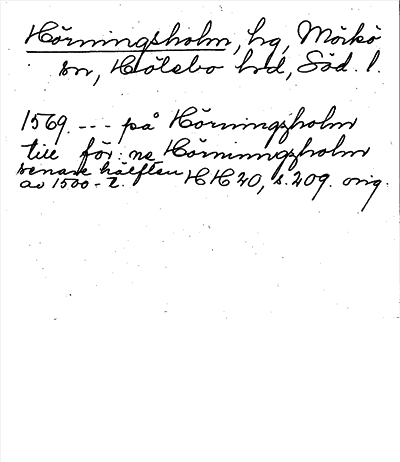 Hörningsholm, hg, Mörkö
sn, Hölebo hd, Söd. l.
1569. --- på Hörningzholm
till för:ne Hörninngzholm
senare hälften
av 1500-t. HH20, s. 209. orig.